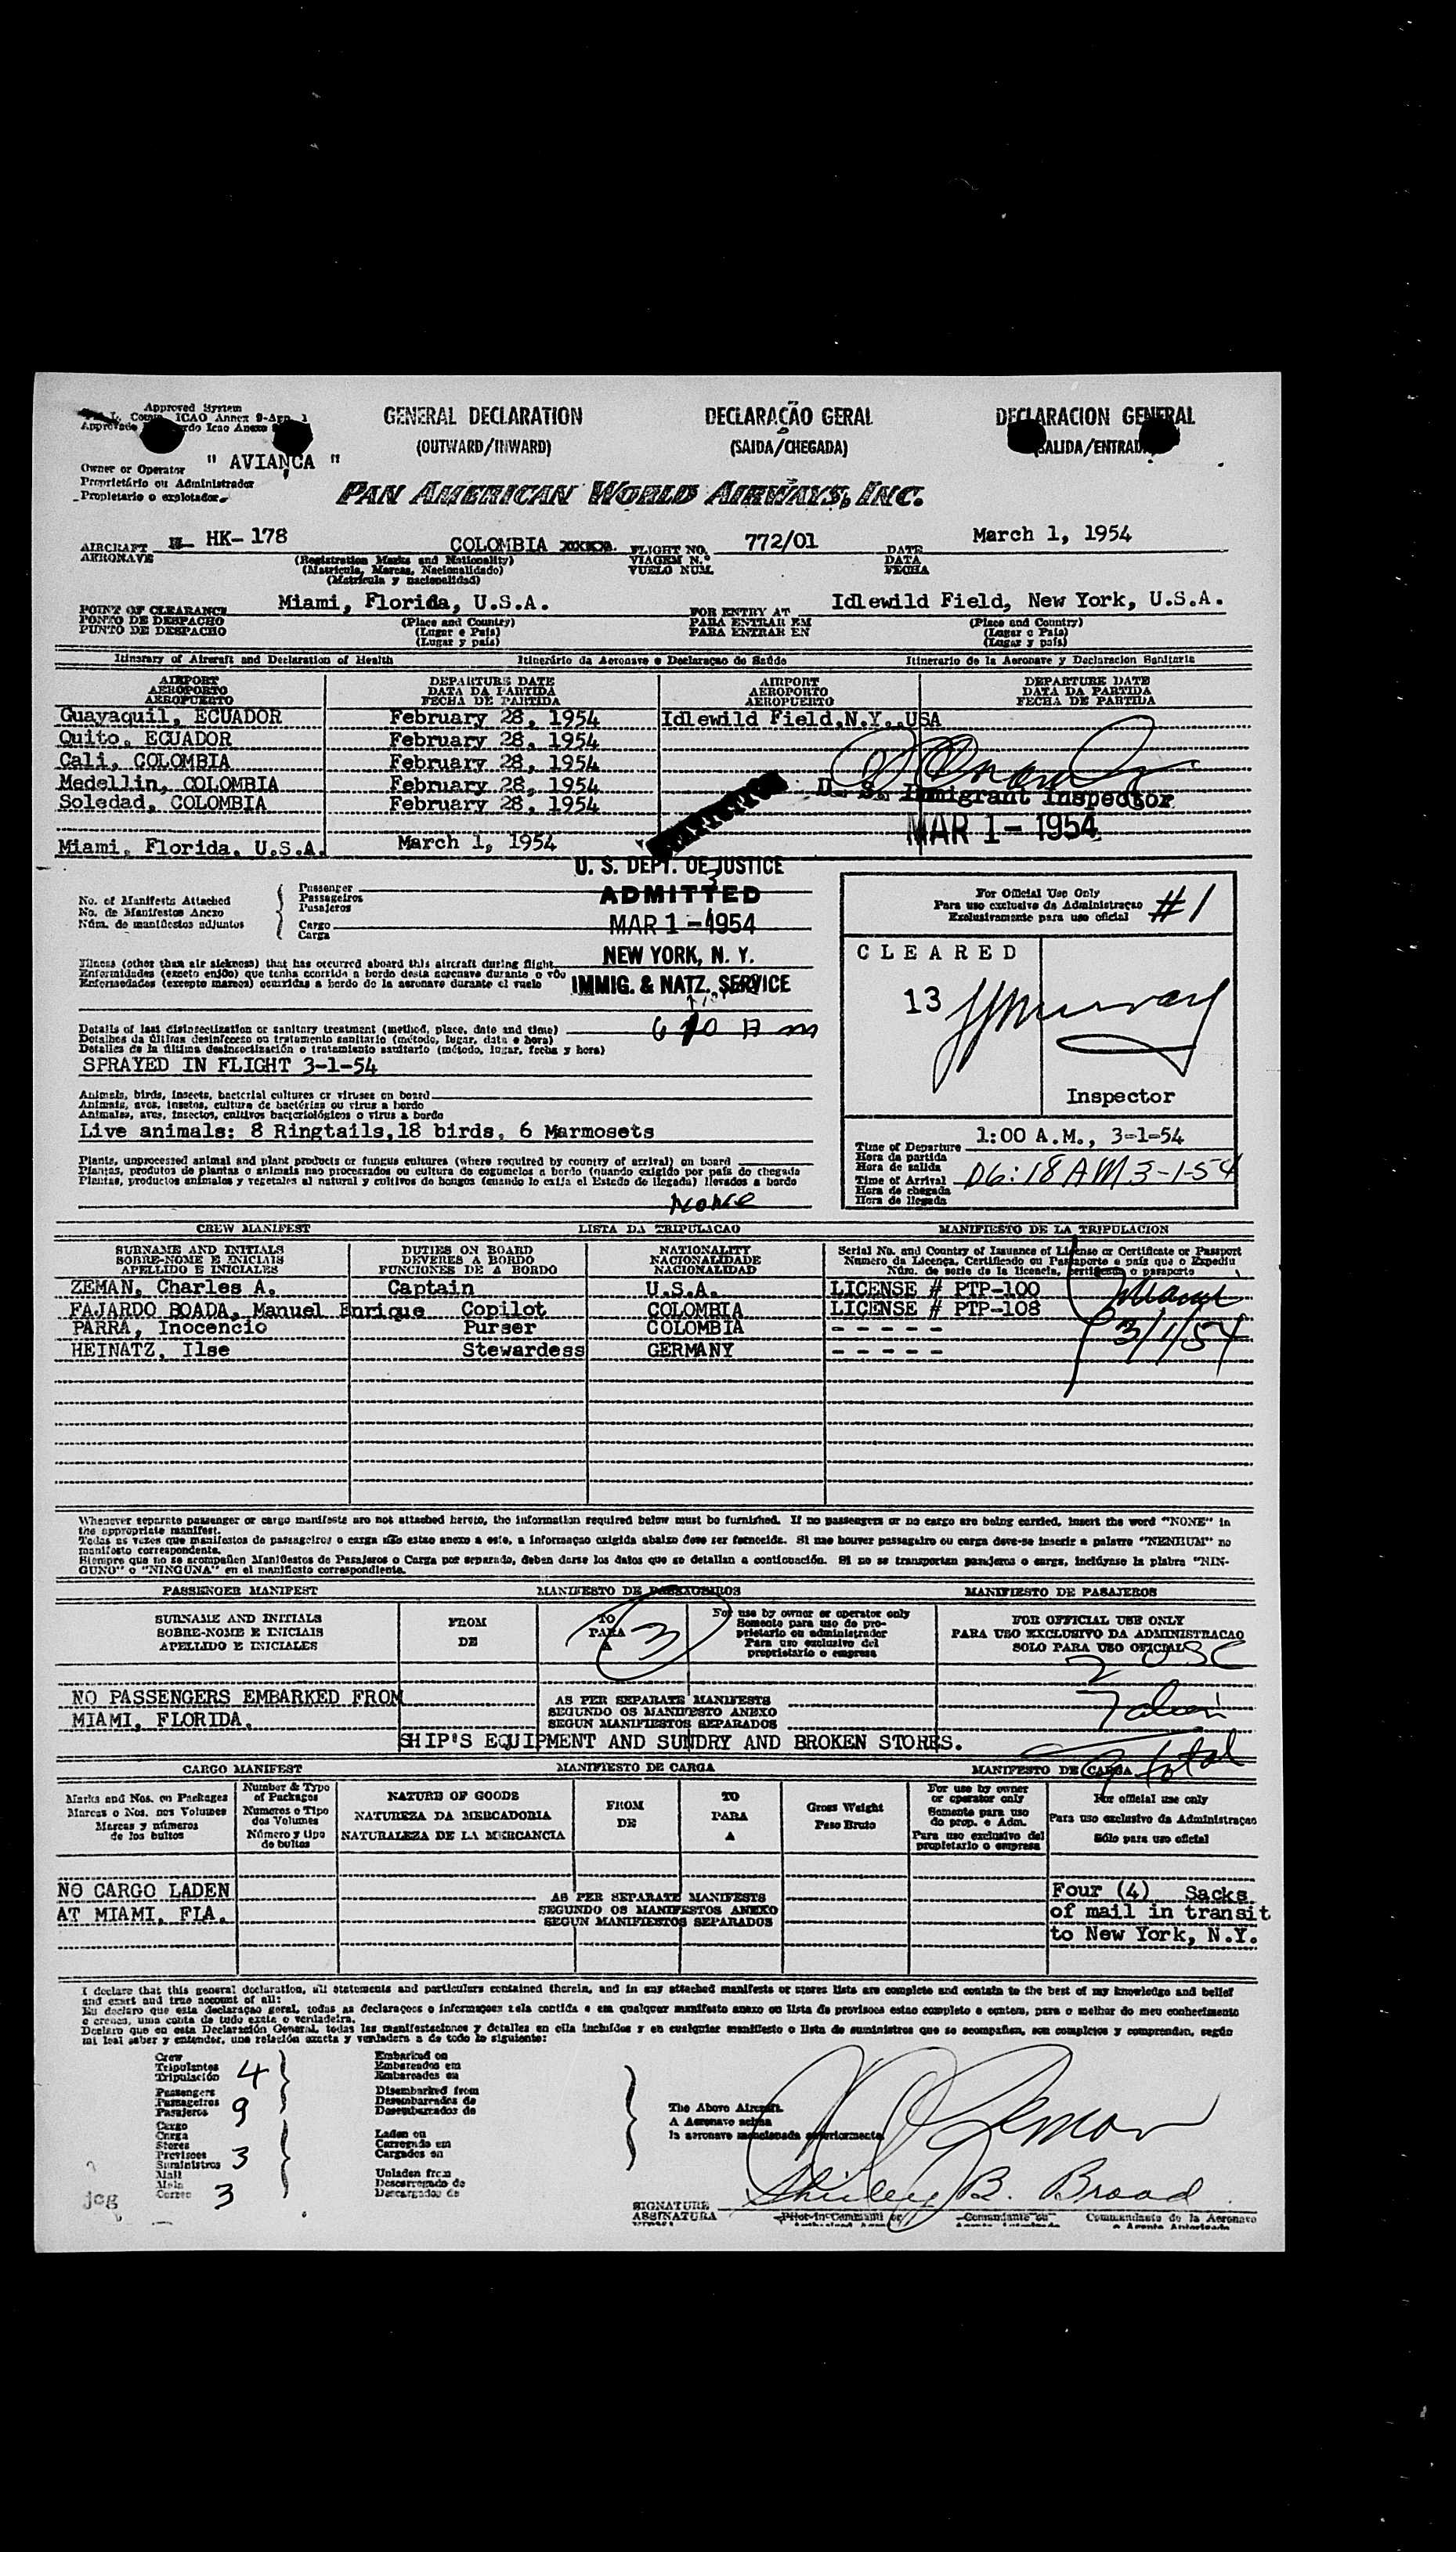 Approved System
ICAO Annex 9-App. 1
GENERAL DECLARATION
(OUTWARD/INWARD)
DECLARAÇÃO GERAL
(SAIDA/CHEGADA)
DECLARACION GENERAL
SALIDA/ENTRADA
Owner or Operator " AVIANCA "
Proprietário ou Administrador
Propietario o explotador
PAN AMERICAN WORLD AIRWAYS, INC.
AIRCRAFT HK- 178 COLOMBIA FLIGHT NO. 772/01 DATE March 1, 1954
AERONAVE VIAGEM N.º DATA
VUELO NUM. FECHA
(Registration Marks and Nationality)
(Matricula, Marcas, Nacionalidade)
(Matricula y nacionalidad)
POINT OF CLEARANCE Miami, Florida, U.S.A. FOR ENTRY AT Idlewild Field, New York, U.S.A.
PONTO DE DESPACHO (Place and Country) PARA ENTRAR EM (Place and Country)
PUNTO DE DESPACHO (Lugar e País) PARA ENTRAR EN (Lugar e País)
(Lugar y país) (Lugar y país)
Itinerary of Aircraft and Declaration of Health Itinerário da Aeronave e Declaraçao de Saúde Itinerario de la Aeronave y Declaracion Sanitaria
AIRPORT DEPARTURE DATE AIRPORT DEPARTURE DATE
AEROPORTO DATA DA PARTIDA AEROPORTO DATA DA PARTIDA
AEROPUERTO FECHA DE PARTIDA AEROPUERTO FECHA DE PARTIDA
Guayaquil, ECUADOR February 28, 1954 Idlewild Field,N.Y.,USA
Quito, ECUADOR February 28, 1954
Cali, COLOMBIA February 28, 1954
Medellin, COLOMBIA February 28, 1954
Soledad, COLOMBIA February 28, 1954
U. S. Immigrant Inspector
MAR 1 - 1954
Miami, Florida, U.S.A. March 1, 1954
U. S. DEPT. OF JUSTICE
ADMITTED
MAR 1 - 1954
NEW YORK, N. Y.
IMMIG. & NATZ. SERVICE
No. of Manifests Attached
No. de Manifestos Anexo
Núm. de manifiestos adjuntos
Passenger
Passageiros
Pasajeros
Cargo
Carga
For Official Use Only
Para uso exclusivo da Administraçao
Exclusivamente para uso oficial
#1
CLEARED
13
Inspector
Illness (other than air sickness) that has occurred aboard this aircraft during flight
Enfermidades (exceto enjôo) que tenha ocorrido a bordo desta aeronave durante o vôo
Enfermedades (excepto mareos) ocurridas a bordo de la aeronave durante el vuelo
Details of last disinsectization or sanitary treatment (method, place, date and time)
Detalhes da última desinfecçao ou tratamento sanitario (método, lugar, data e hora)
Detalles de la última desinsectización o tratamiento sanitario (método, lugar, fecha y hora)
SPRAYED IN FLIGHT 3-1-54
Animals, birds, insects, bacterial cultures or viruses on board
Animais, aves, insetos, cultura de bactérias ou virus a bordo
Animales, aves, insectos, cultivos bacteriológicos o virus a bordo
Live animals: 8 Ringtails,18 birds, 6 Marmosets
Plants, unprocessed animal and plant products or fungus cultures (where required by country of arrival) on board
Plantas, produtos de plantas o animais nao procesados ou cultura de cogumelos a bordo (quando exigido por país de chegada
Plantas, productos animales y vegetales al natural y cultivos de hongos (cuando lo exija el Estado de llegada) llevados a bordo
None
Time of Departure 1:00 A.M., 3-1-54
Hora da partida
Hora de salida
Time of Arrival 06:18 AM 3-1-54
Hora de chegada
Hora de llegada
CREW MANIFEST LISTA DA TRIPULACAO MANIFIESTO DE LA TRIPULACION
SURNAME AND INITIALS DUTIES ON BOARD NATIONALITY Serial No. and Country of Issuance of License or Certificate or Passport
SOBRE-NOME E INICIAIS DEVERES A BORDO NACIONALIDADE Numero da Licença, Certificado ou Passaporte e país que o Expediu
APELLIDO E INICIALES FUNCIONES DE A BORDO NACIONALIDAD Núm. de serie de la licencia, certificado o pasaporte
ZEMAN, Charles A. Captain U.S.A. LICENSE # PTP-100
FAJARDO BOADA, Manuel Enrique Copilot COLOMBIA LICENSE # PTP-108
PARRA, Inocencio Purser COLOMBIA - - - - -
HEINATZ, Ilse Stewardess GERMANY - - - - -
3/1/54
Whenever separate passenger or cargo manifests are not attached hereto, the information required below must be furnished. If no passengers or no cargo are being carried, insert the word "NONE" in
the appropriate manifest.
Todas as vezes que manifestos de passageiros o carga não estao anexo a este, a informaçao exigida abaixo deve ser fornecida. Si nao houver passageiro ou carga deve-se inserir a palavra "NENHUM" no
manifesto correspondente.
Siempre que no se acompañen Manifiestos de Pasajeros o Carga por separado, deben darse los datos que se detallan a continuación. Si no se transportan pasajeros o carga, inclúyase la plabra "NIN-
GUNO" o "NINGUNA" en el manifiesto correspondiente.
PASSENGER MANIFEST MANIFESTO DE PASSAGEIROS MANIFIESTO DE PASAJEROS
SURNAME AND INITIALS FROM TO For use by owner or operator only FOR OFFICIAL USE ONLY
SOBRE-NOME E INICIAIS DE PARA Somente para uso de pro- PARA USO EXCLUSIVO DA ADMINISTRACAO
APELLIDO E INICIALES A prietario ou administrador SOLO PARA USO OFICIAL
Para uso exclusivo del
proprietario o empresa
3
2 USC
7 alien
9 total
NO PASSENGERS EMBARKED FROM AS PER SEPARATE MANIFESTS
MIAMI, FLORIDA. SEGUNDO OS MANIFESTO ANEXO
SEGUN MANIFIESTOS SEPARADOS
SHIP'S EQUIPMENT AND SUNDRY AND BROKEN STORES.
CARGO MANIFEST MANIFIESTO DE CARGA MANIFIESTO DE CARGA
Marks and Nos. on Packages
Marcas o Nos. nos Volumes
Marcas y números
de los bultos
Number & Type
of Packages
Numeros o Tipo
dos Volumes
Número y tipo
de bultos
NATURE OF GOODS
NATUREZA DA MERCADORIA
NATURALEZA DE LA MERCANCIA
FROM
DE
TO
PARA
A
Gross Weight
Peso Bruto
For use by owner
or operator only
Somente para uso
do prop. e Adm.
Para uso exclusivo del
propietario o empresa
For official use only
Para uso exclusivo da Administraçao
Sólo para uso oficial
NO CARGO LADEN AS PER SEPARATE MANIFESTS Four (4) Sacks
AT MIAMI, FLA. SEGUNDO OS MANIFESTOS ANEXO of mail in transit
SEGUN MANIFIESTOS SEPARADOS to New York, N.Y.
I declare that this general declaration, all statements and particulars contained therein, and in any attached manifests or stores lists are complete and contain to the best of my knowledge and belief
and exact and true account of all:
Eu declaro que esta declaraçao geral, todas as declaraçoes o informaçoes nela contida e em qualquer manifesto anexo ou lista de provisoes estao completo e contem, para o melhor do meu conhecimento
e crença, uma conta de tudo exato e verdadeira.
Declaro que en esta Declaración General, todas las manifestaciones y detalles en ella incluídos y en cualquier manifiesto o lista de suministros que se acompañen, son completos y comprenden, según
mi leal saber y entender, una relación exacta y verdadera a de todo lo siguiente:
Crew
Tripulantes
Tripulación 4
Passengers
Passageiros
Pasajeros 9
Cargo
Carga
Stores
Provisoes
Suministros 3
Mail
Mala
Correo 3
Embarked on
Embarcados em
Embarcados en
Disembarked from
Desembarcados de
Desembarcados de
Laden on
Carregado em
Cargados en
Unladen from
Descarregado de
Descargados de
The Above Aircraft
A Aeronave acima
la aeronave mencionada anteriormente
jcg
Shirley B. Broad
SIGNATURE
ASSINATURA
Pilot-in-Command or Comandante ou Commandante de la Aeronave
o Agente Autorizado